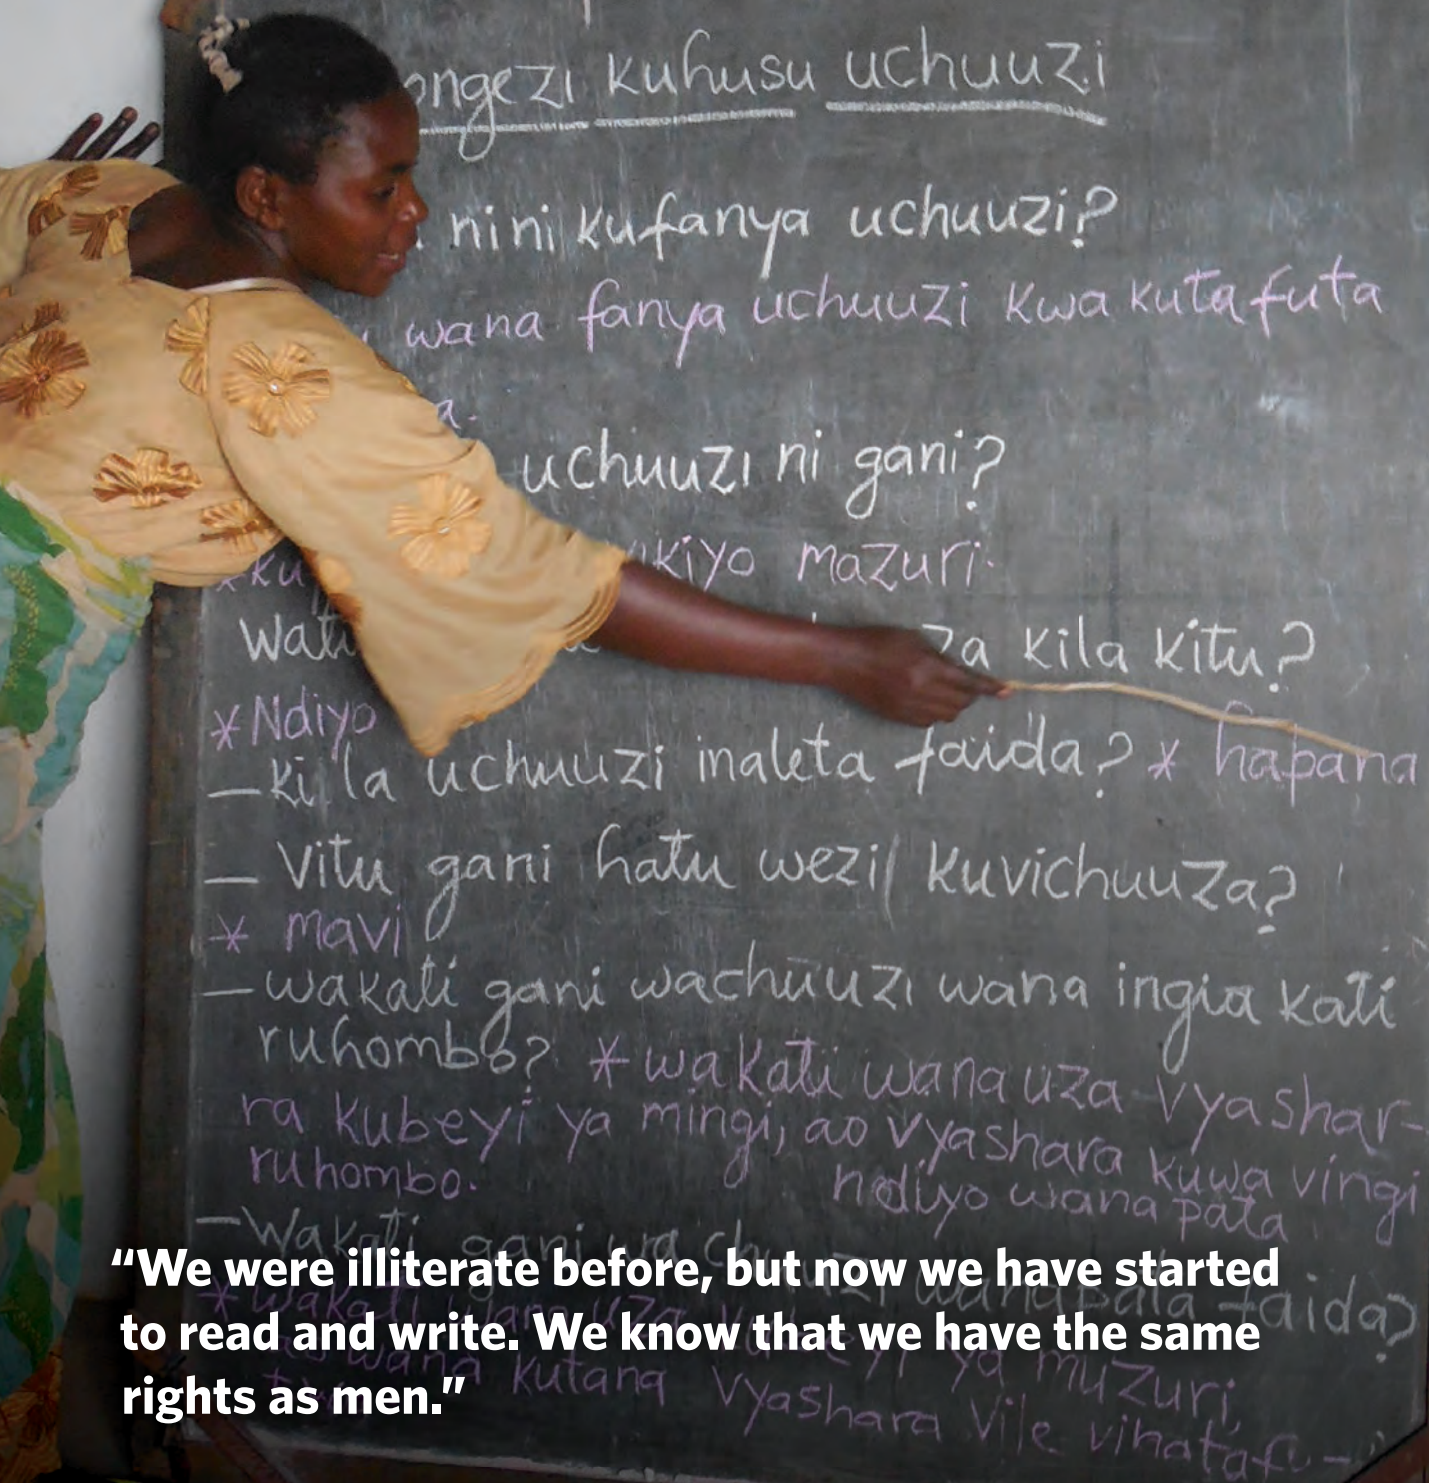 ongezi kuhusu uchuuzi
nini kufanya uchuuzi?
wana fanya uchuuzi kwa kutafuta
a.
uchuuzi ni gani?
*ku kiyo mazuri.
wat za kila kitu?
*Ndiyo
— kila uchuuzi inaleta faida? * hapana
— vitu gani hatu wezi kuvichuuza?
* mavi
— wakati gani wachuuzi wana ingia kati
ruhombo? * wakati wana uza vyashar-
ra kubeyi ya mingi, ao vyashara kuwa vingi
ruhombo. ndiyo wana pata
— Wakati gani wachuuzi wanapata faida?
* wakati wana uza kubeyi ya muzuri,
wana kutana vyashara vile vihatafu-
“We were illiterate before, but now we have started
to read and write. We know that we have the same
rights as men.”